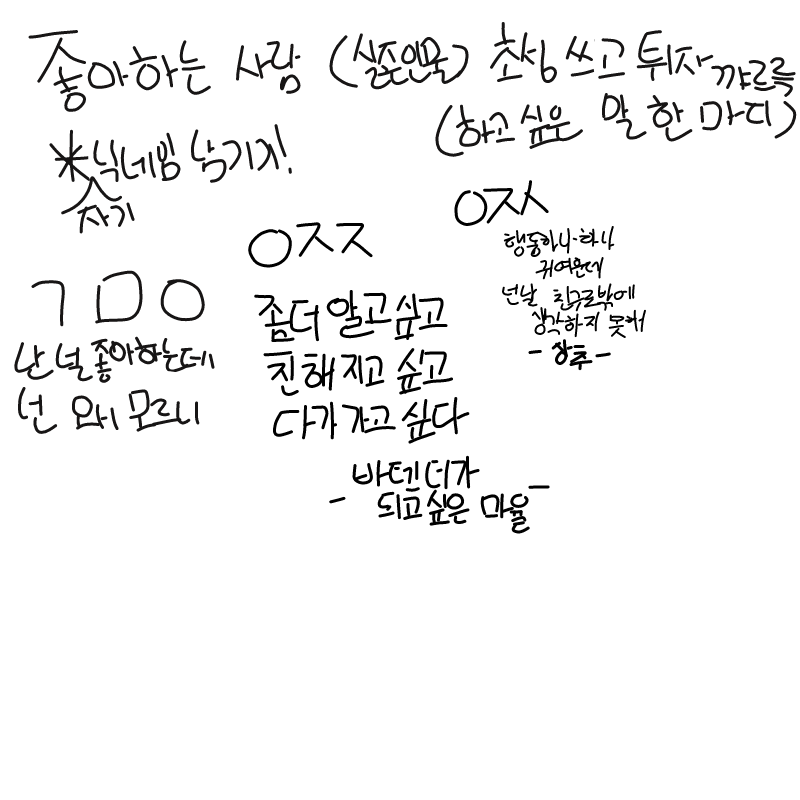 좋아하는 사람 (실존인물) 초성 쓰고 튀자 꺄르륵
(하고 싶은 말 한 마디)
*닉네임 남기기!
자기
ㄱㅁㅇ
난 널 좋아하는데
넌 왜 모르니
ㅇㅈㅈ
좀더 알고싶고
친해지고 싶고
다가가고 싶다
바텐더가
- 되고싶은 마율 -
ㅇㅈㅅ
행동하나·하나
귀여운데
넌날 친구로밖에
생각하지 못해
- 상추 -